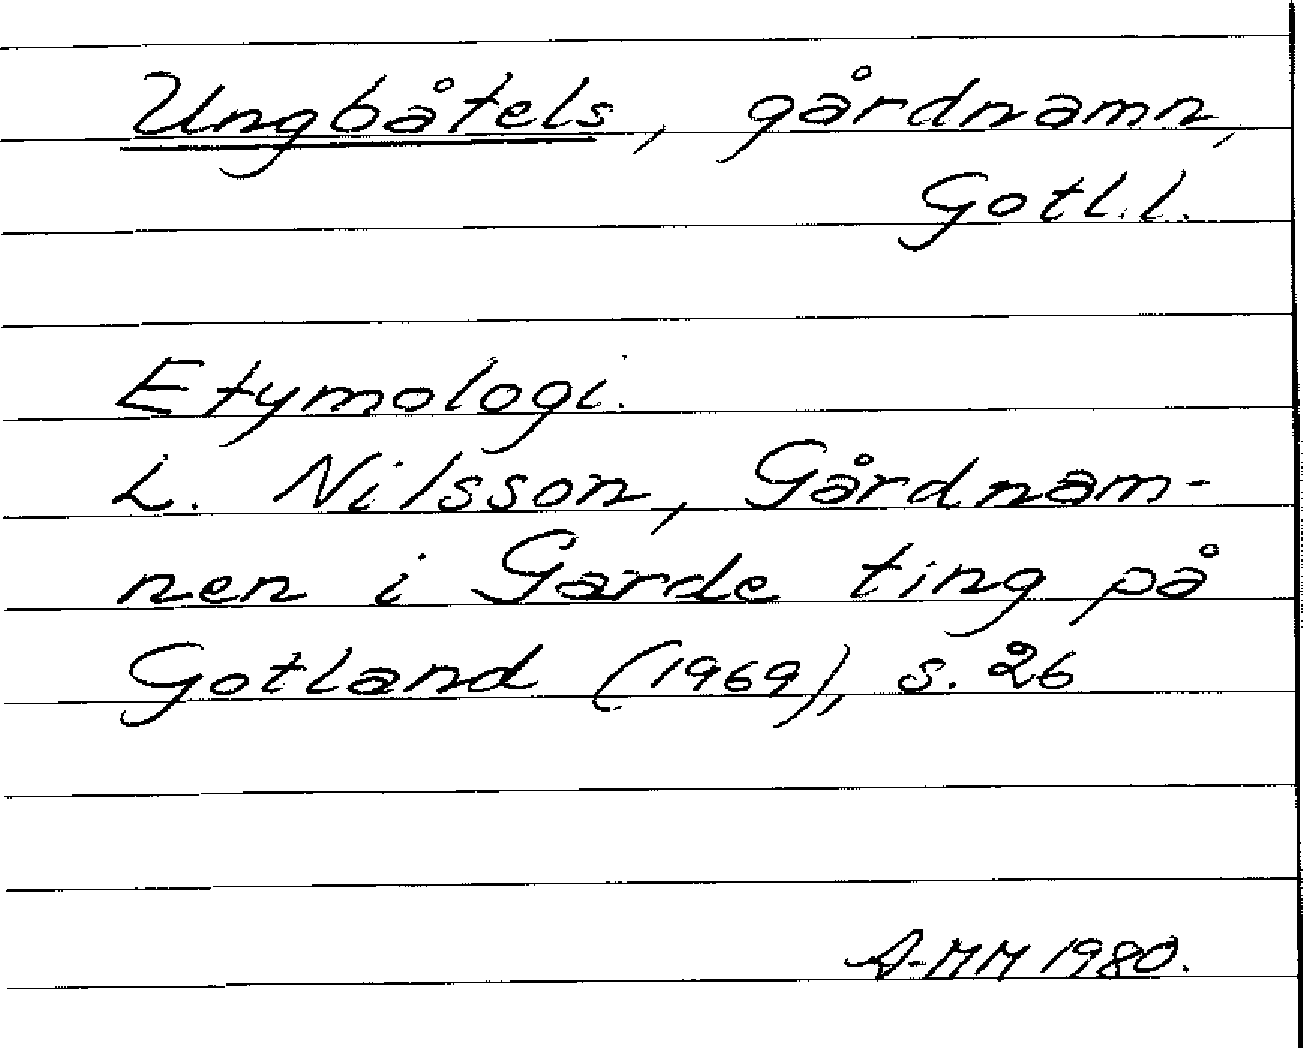 Ungbåtels, gårdnamn,
Gotl.l.
Etymologi.
L. Nilsson, Gårdnam-
nen i Garde ting på
Gotland (1969), s. 26
A-MM 1980.